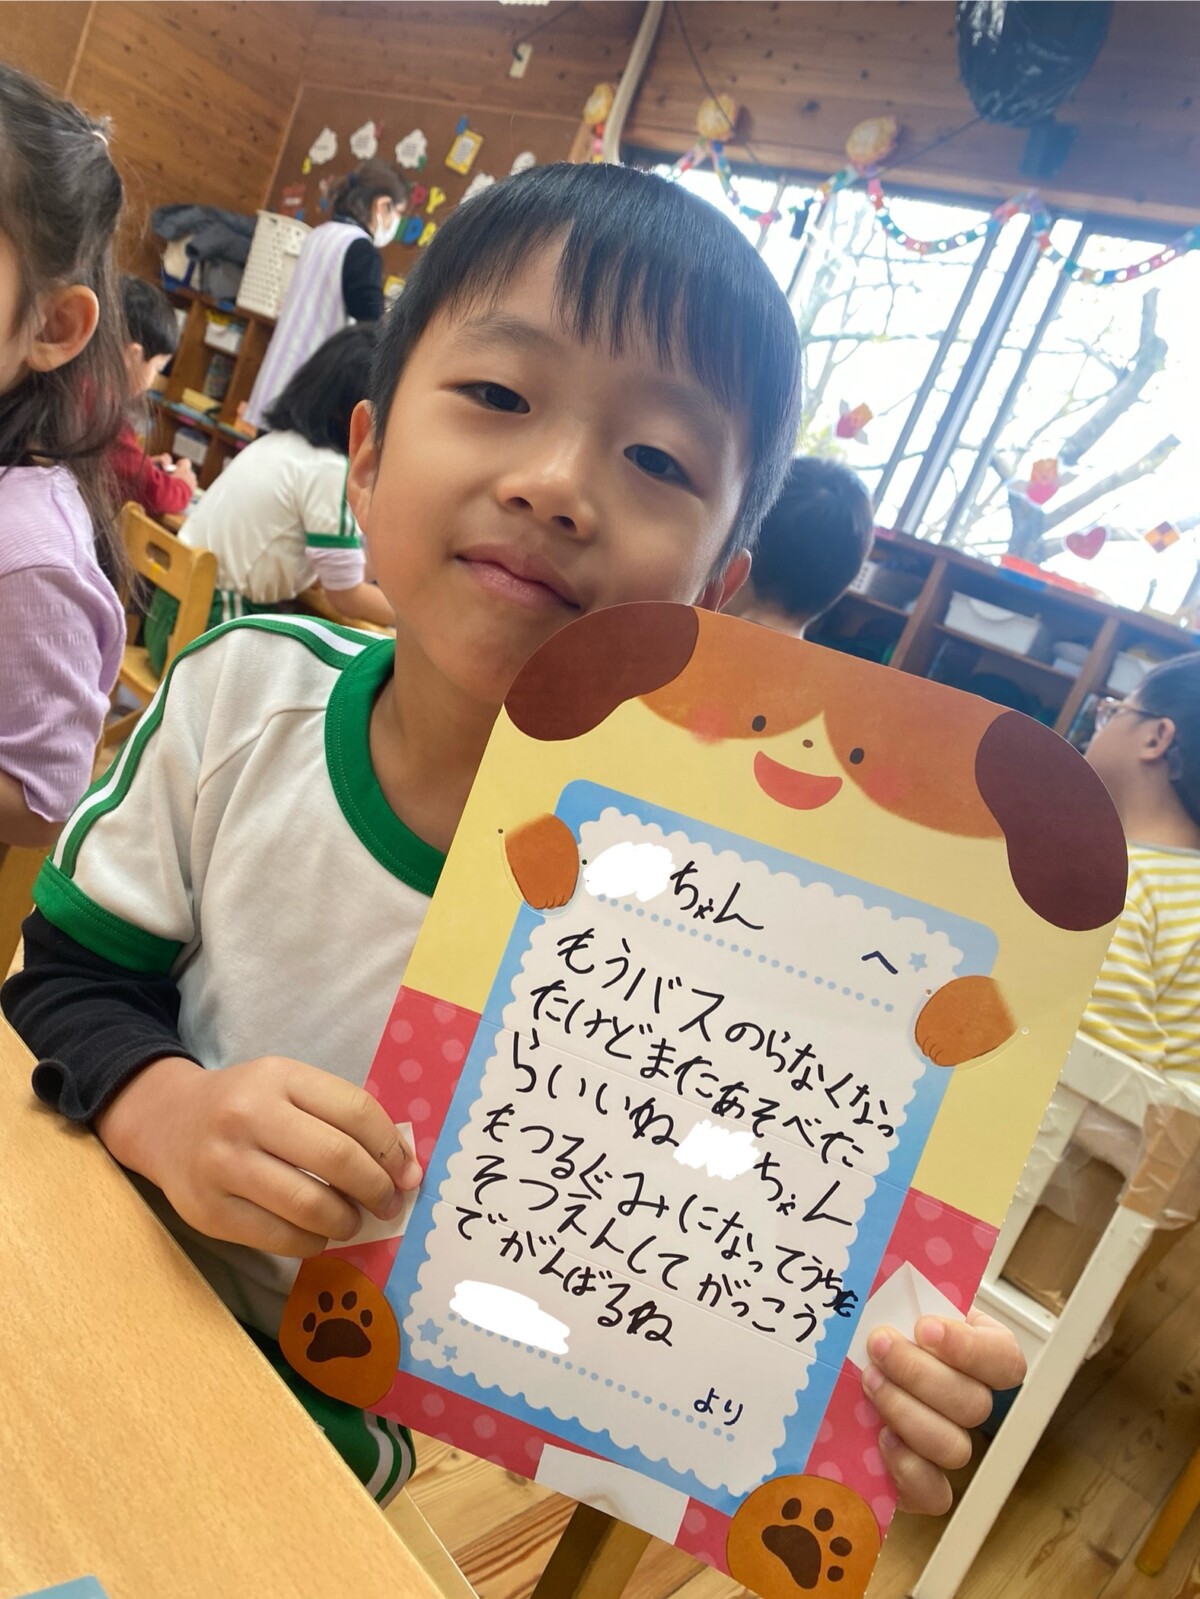 ちゃん へ
もうバスのらなくなっ
たけどまたあそべた
らいいね ちゃん
もつるぐみになってうちも
そつえんしてがっこう
でがんばるね
より